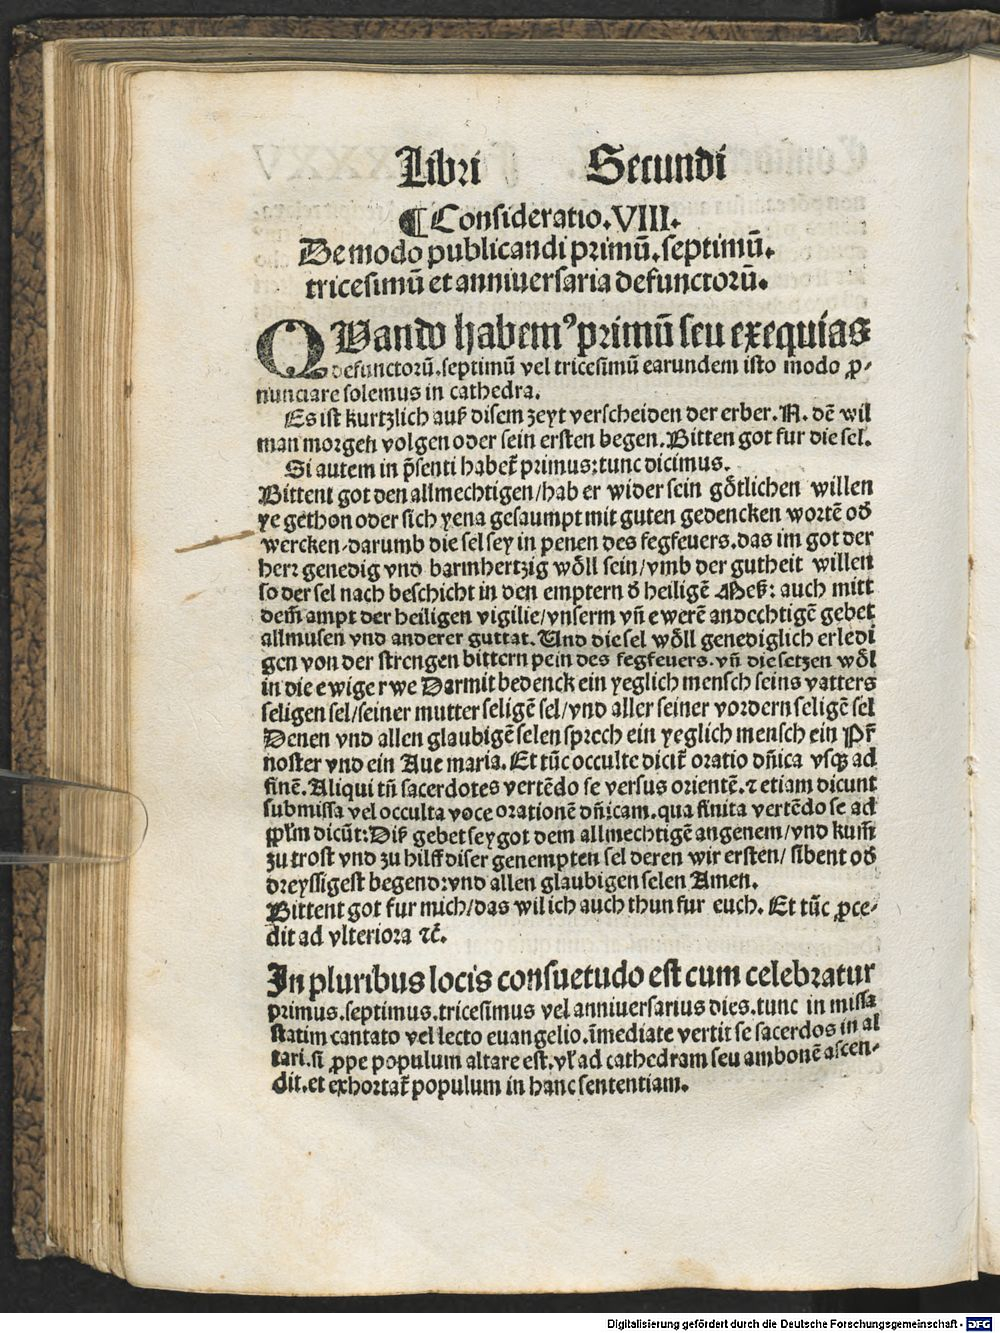 Libri Secundi
¶ Consideratio. VIII.
De modo publicandi primū. septimū.
tricesimū et anniuersaria defunctorū.
QVando habemꝰ primū seu exequias
defunctorū. septimū vel tricesimū earundem isto modo ꝓ-
nunciare solemus in cathedra.
Es ist kurtzlich auß disem zeyt verscheiden der erber. N. dē wil
man morgen volgen oder sein ersten begen. Bitten got fur die sel.
Si autem in p̄senti habet̄ primus: tunc dicimus.
Bittent got den allmechtigen/hab er wider sein gȯtlichen willen
ye gethon oder sich yena gesaumpt mit guten gedencken wortē oð
wercken. darumb die sel sey in penen des fegfeuers. das im got der
herr genedig vnd barmhertzig wȯll sein/vmb der gutheit willen
so der sel nach beschicht in den emptern ð heiligē Meß: auch mitt
dem̄ ampt der heiligen vigilie/vnserm vn̄ ewerē andechtigē gebet
allmusen vnd anderer guttat. Und die sel wȯll genediglich erledi
gen von der strengen bittern pein des fegfeuers. vn̄ die setzen wȯl
in die ewige rwe Darmit bedenck ein yeglich mensch seins vatters
seligen sel/seiner mutter seligē sel/vnd aller seiner vordern seligē sel
Denen vnd allen glaubigē selen sprech ein yeglich mensch ein Pr̄
noster vnd ein Aue maria. Et tūc occulte dicit̄ oratio dn̄ica vsqꝫ ad
finē. Aliqui tn̄ sacerdotes vertēdo se versus orientē. ⁊ etiam dicunt
submissa vel occulta voce orationē dn̄icam. qua finita vertēdo se ad
pp̄lm dicūt: Diß gebet sey got dem allmechtigē angenem/vnd kum̄
zu trost vnd zu hilff diser genempten sel deren wir ersten/ sibent oð
dreyssigest begend: vnd allen glaubigen selen Amen.
Bittent got fur mich/das wil ich auch thun fur euch. Et tūc ꝓce-
dit ad vlteriora ⁊c̄.
In pluribus locis consuetudo est cum celebratur
primus. septimus. tricesimus vel anniuersarius dies. tunc in missa
statim cantato vel lecto euangelio. īmediate vertit se sacerdos in al
tari. si ꝓpe populum altare est. vl̄ ad cathedram seu ambonē ascen-
dit. et exhortat̄ populum in hanc sententiam.
Digitalisierung gefördert durch die Deutsche Forschungsgemeinschaft - DFG